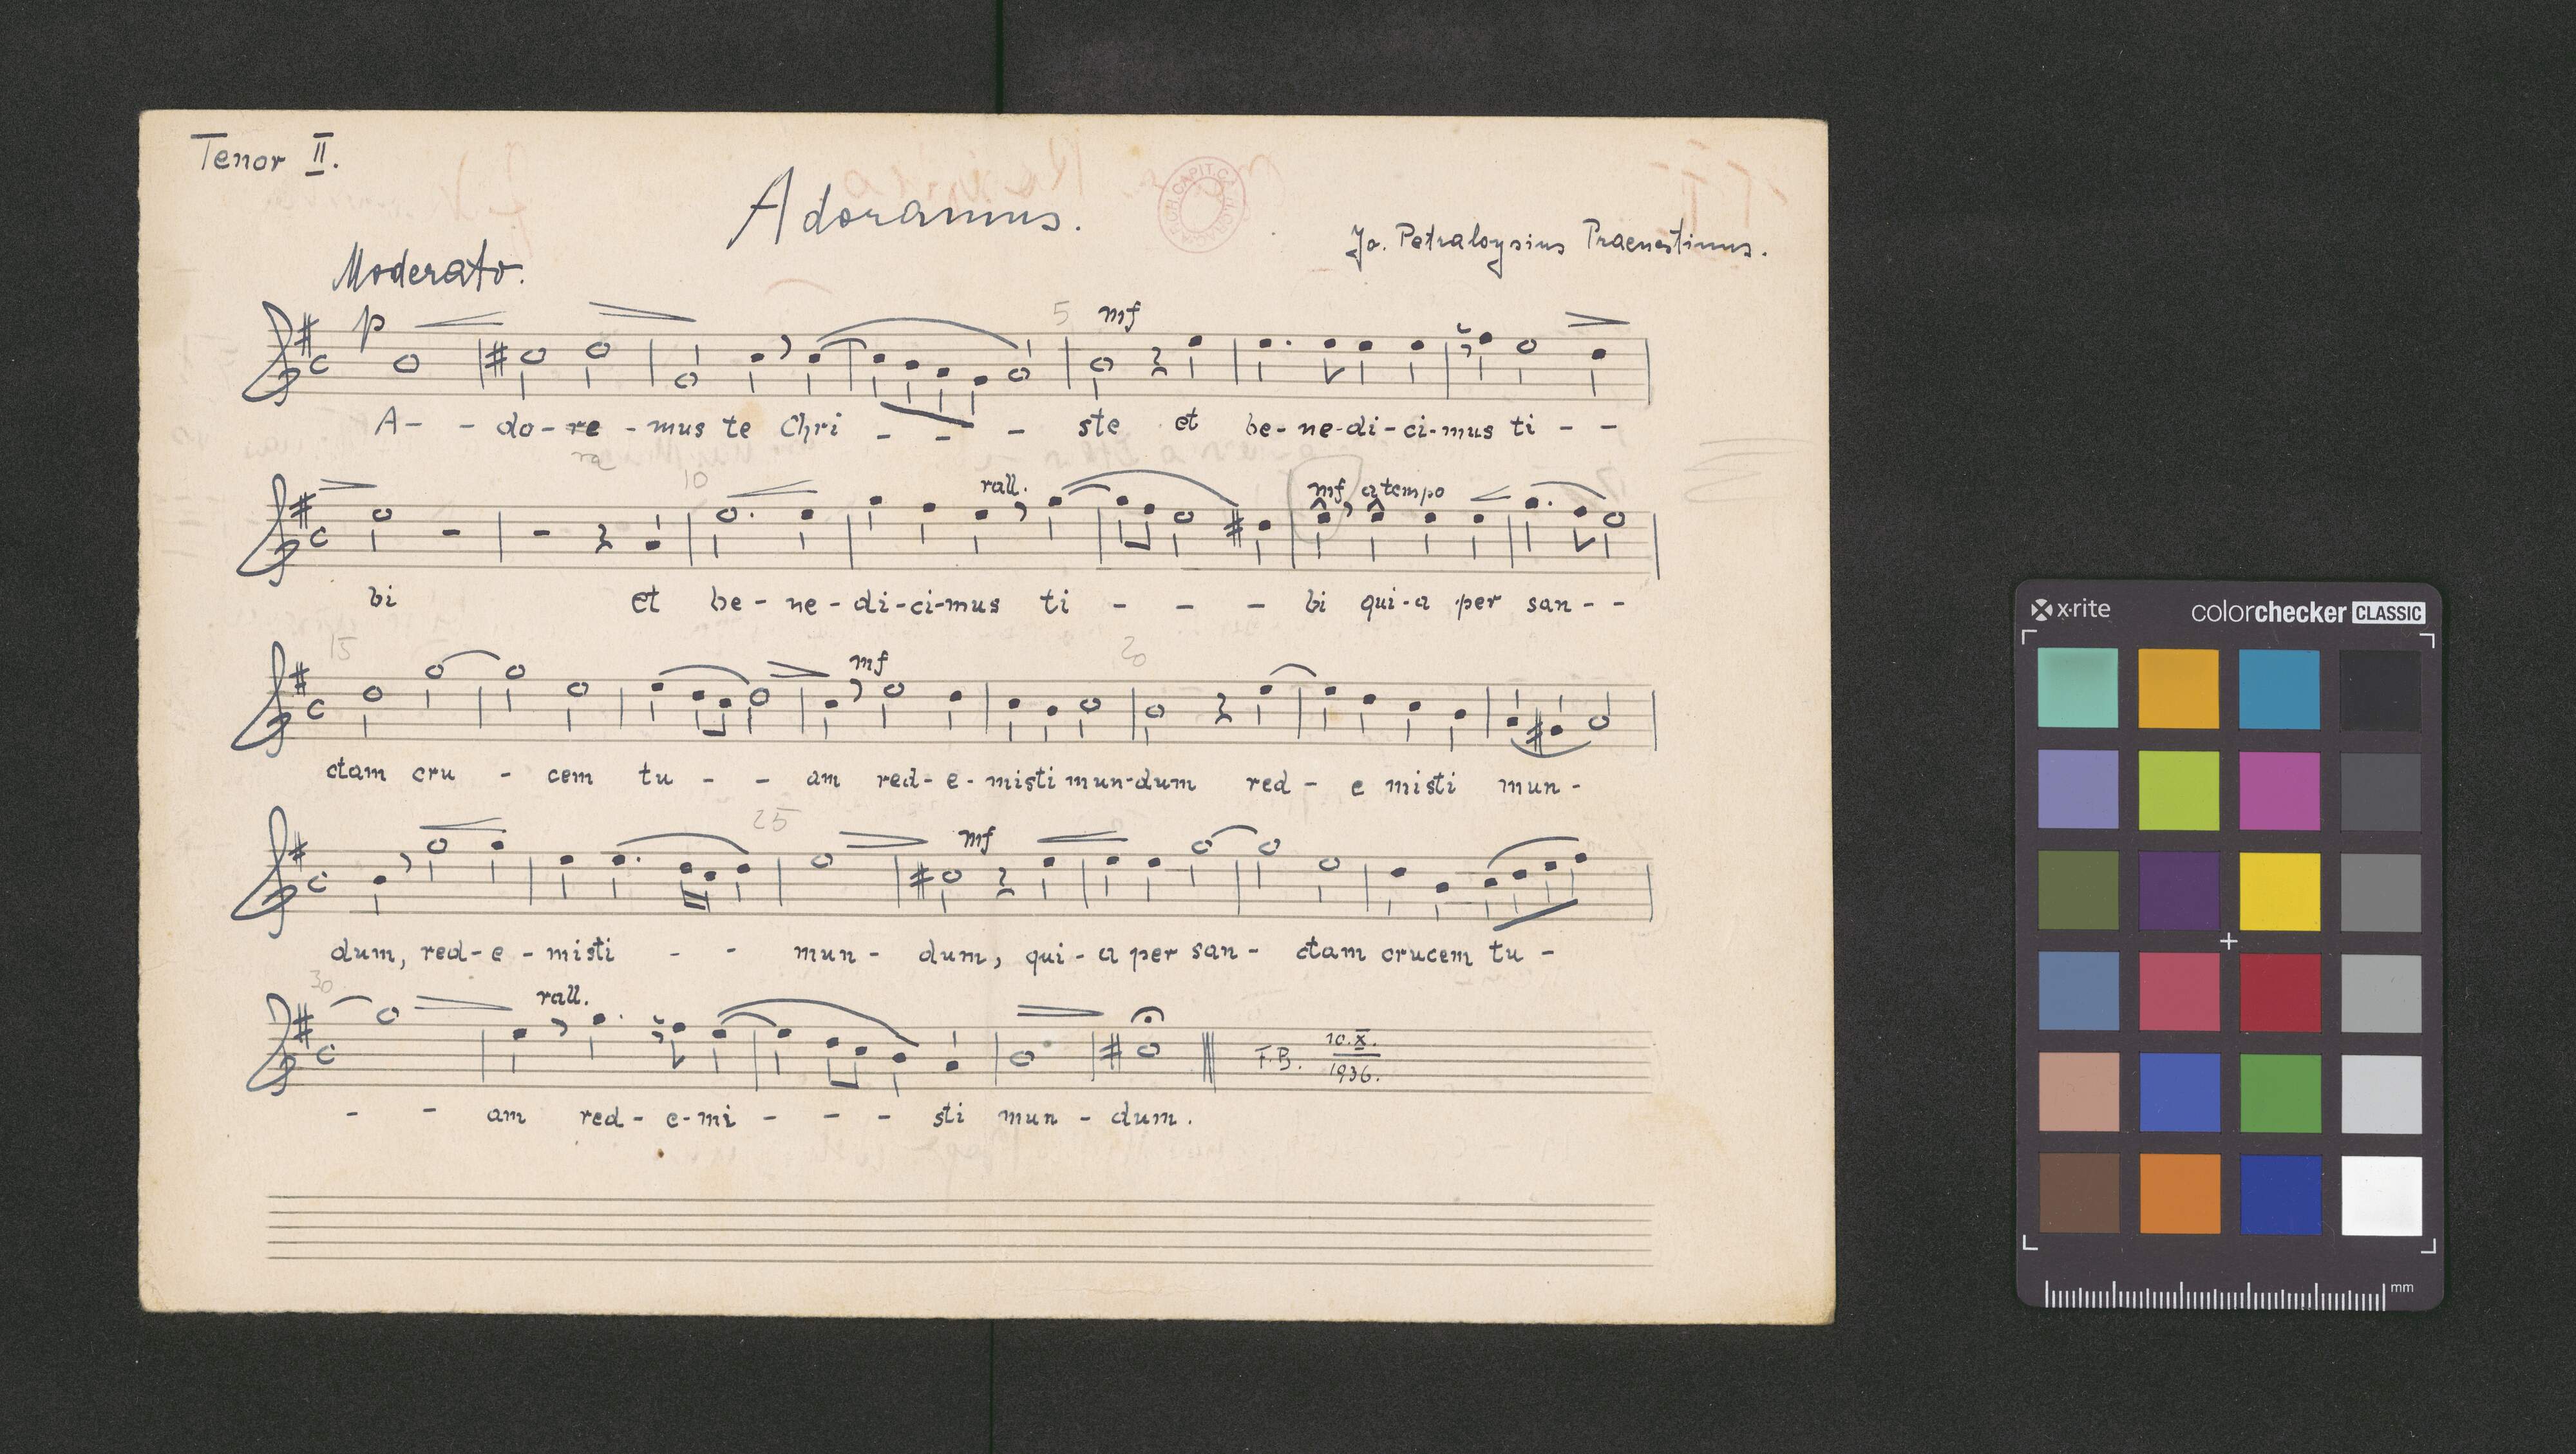 Tenor II.
Adoramus.
Jo. Petraloysius Praenestinus.
Moderato.
p
5
mf
A- - do-re-mus te Chri - - - ste et be-ne-di-ci-mus ti - -
ra
10
rall.
mf a tempo
bi et be-ne-di-ci-mus ti - - - bi qui-a per san - -
15
mf
20
ctam cru - cem tu - - am red-e-misti mun-dum red - e misti mun -
25
mf
dum, red-e-misti - - mun - dum, qui-a per san - ctam crucem tu -
30
rall.
F.B. 10.X.
1936.
- - am red - e-mi - - - sti mun - dum.
x·rite colorchecker CLASSIC
mm